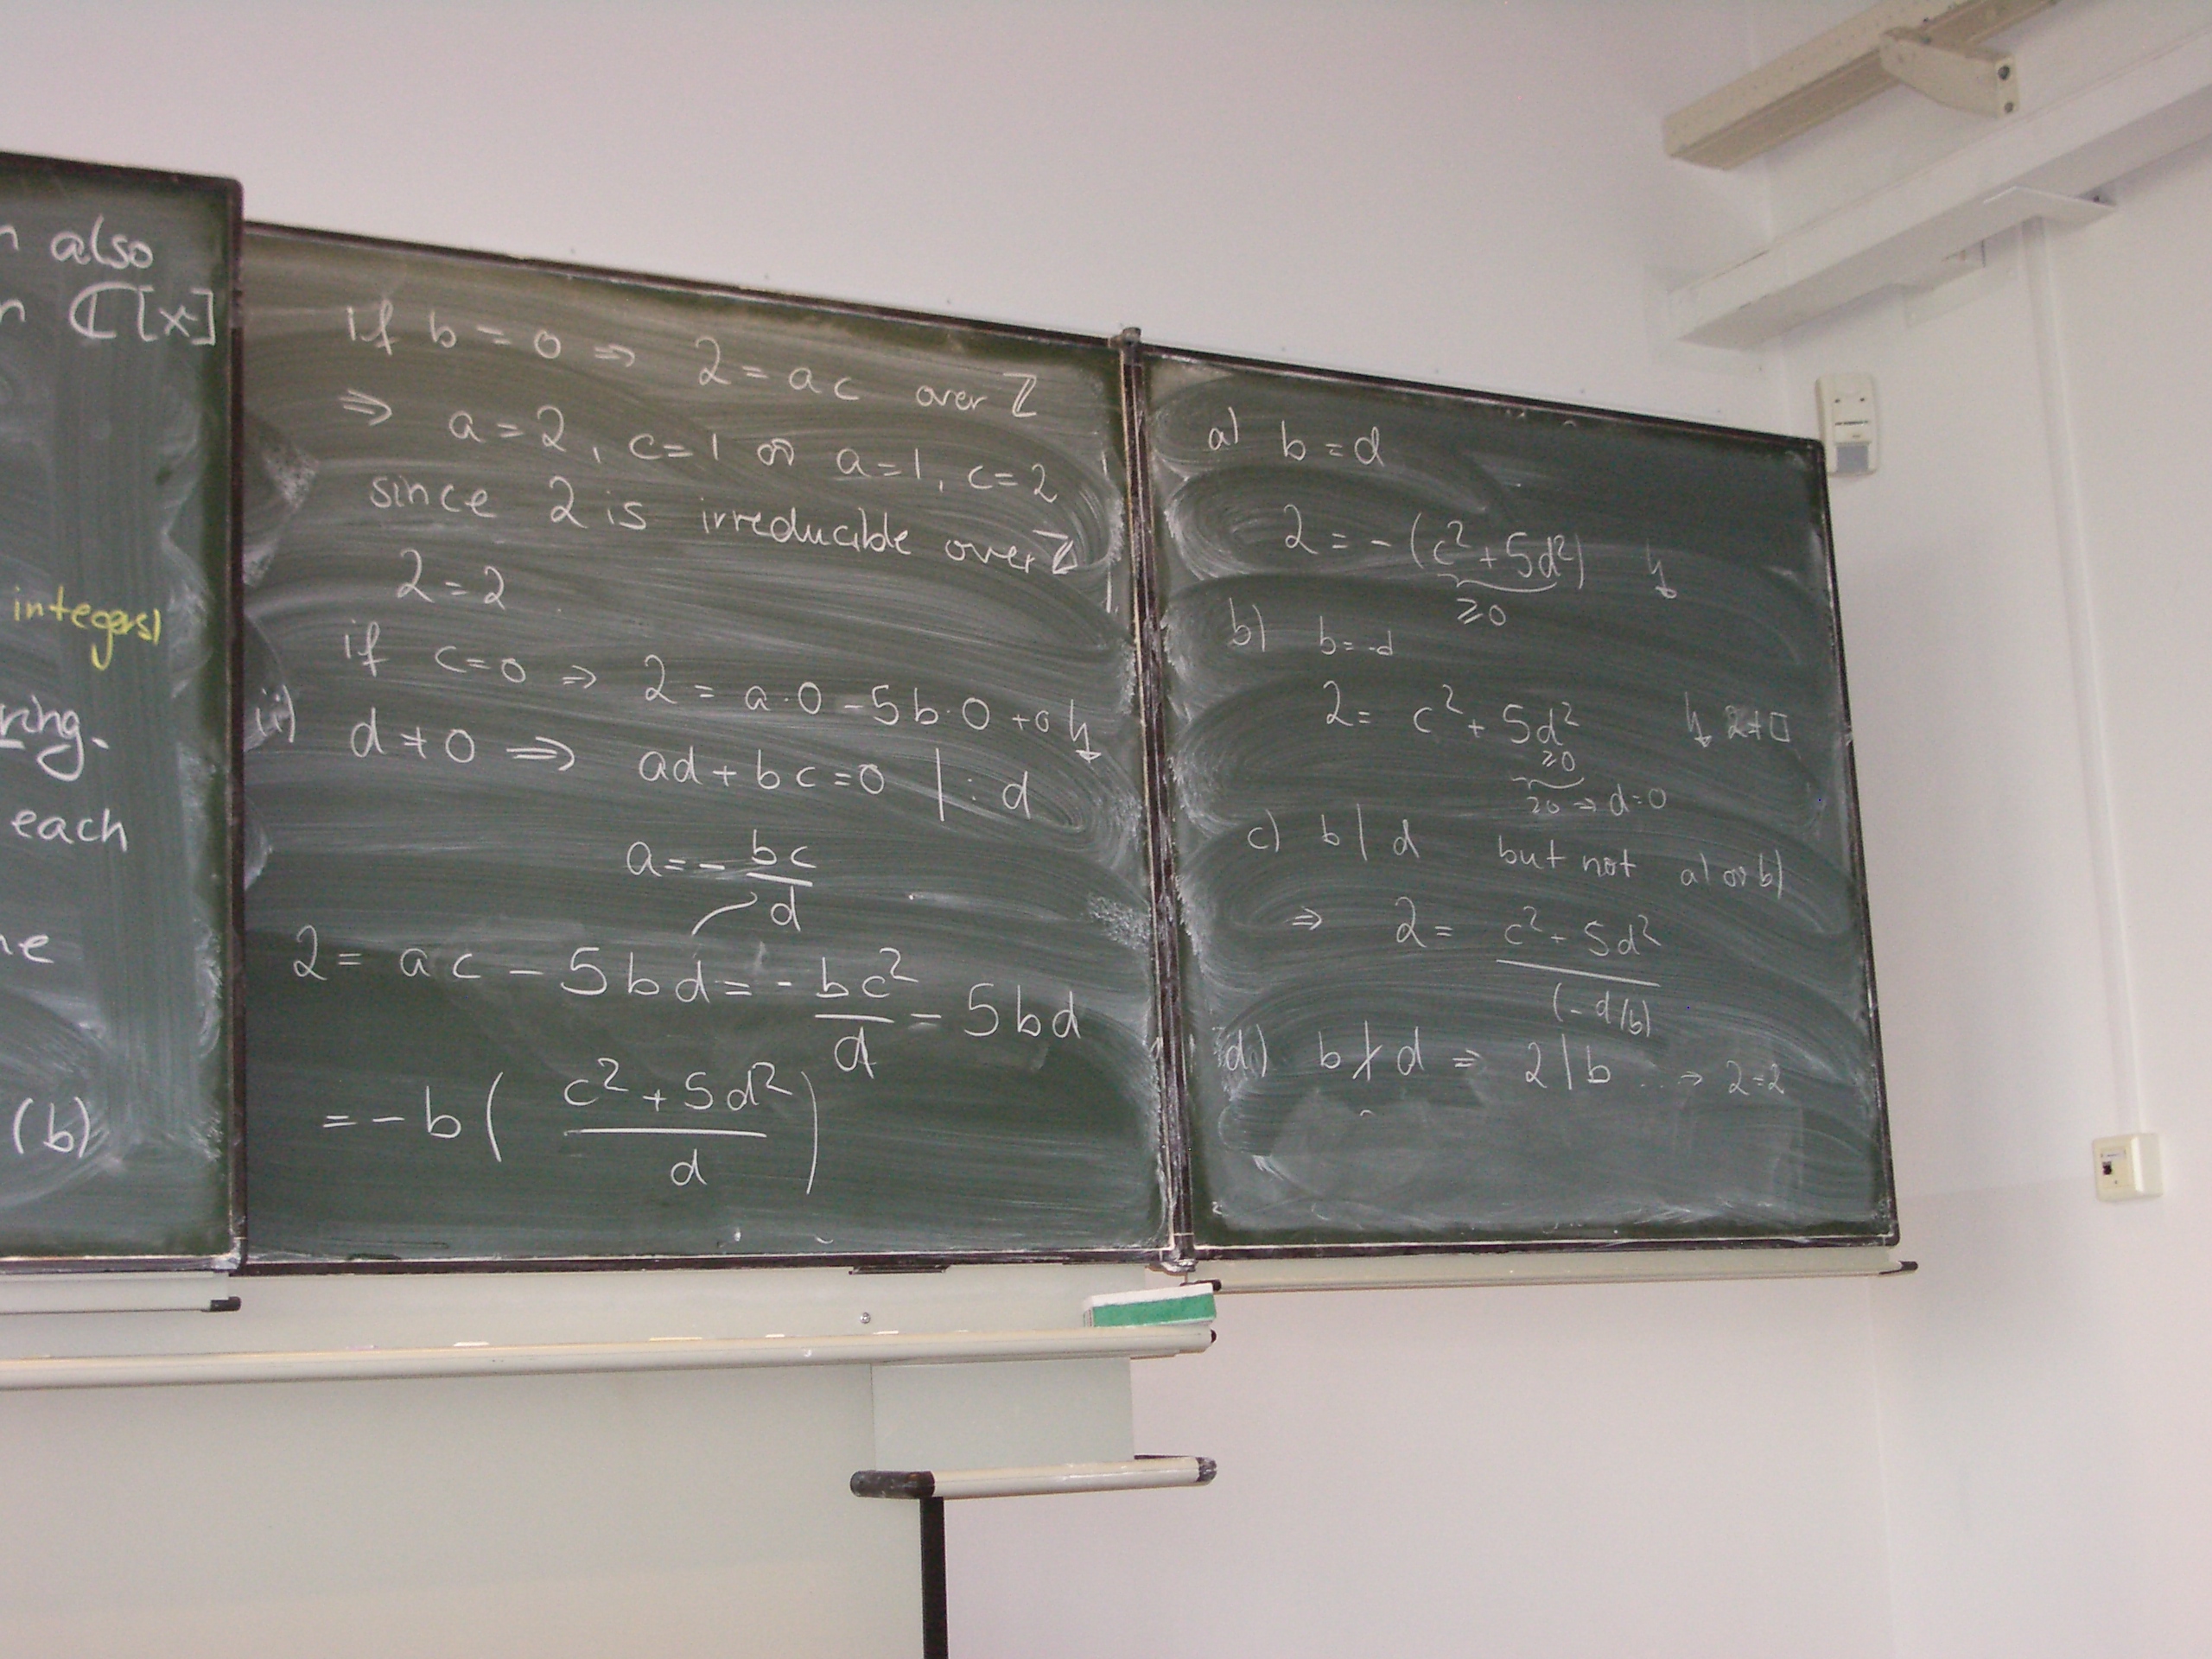 also
ℂ[x]
integers)
ring.
each
(b)
if b = 0 ⇒ 2 = ac over ℤ
⇒ a = 2, c = 1 or a = 1, c = 2
since 2 is irreducible over ℤ
2 = 2
if c = 0 ⇒ 2 = a·0 - 5b·0 + 0 ↯
ii) d ≠ 0 ⇒ ad + bc = 0 | : d
a = - bc/d
2 = ac - 5bd = - bc²/d - 5bd
= - b( (c² + 5d²)/d )
a) b = d
2 = - (c² + 5d²) ↯
≥0
b) b = -d
2 = c² + 5d² ↯ 2≠□
≥0
≥0 ⇒ d=0
c) b | d but not a) or b)
⇒ 2 = (c² + 5d²)/(-d/b)
d) b ∤ d ⇒ 2 | b ... → 2=2